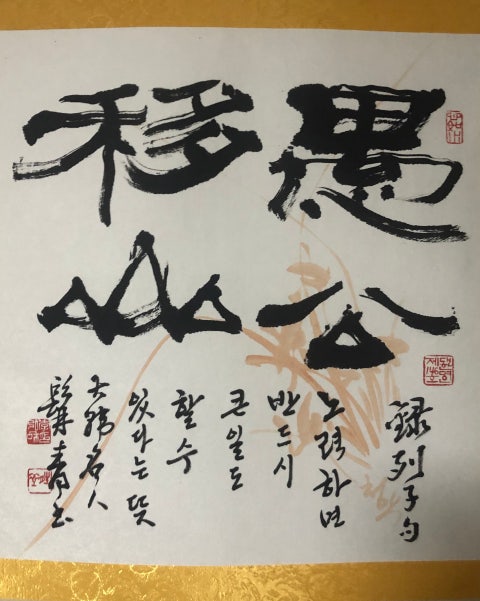 愚公
移山
錄列子句
노력하면
반드시
큰일도
할수
있다는 뜻
大韓名人